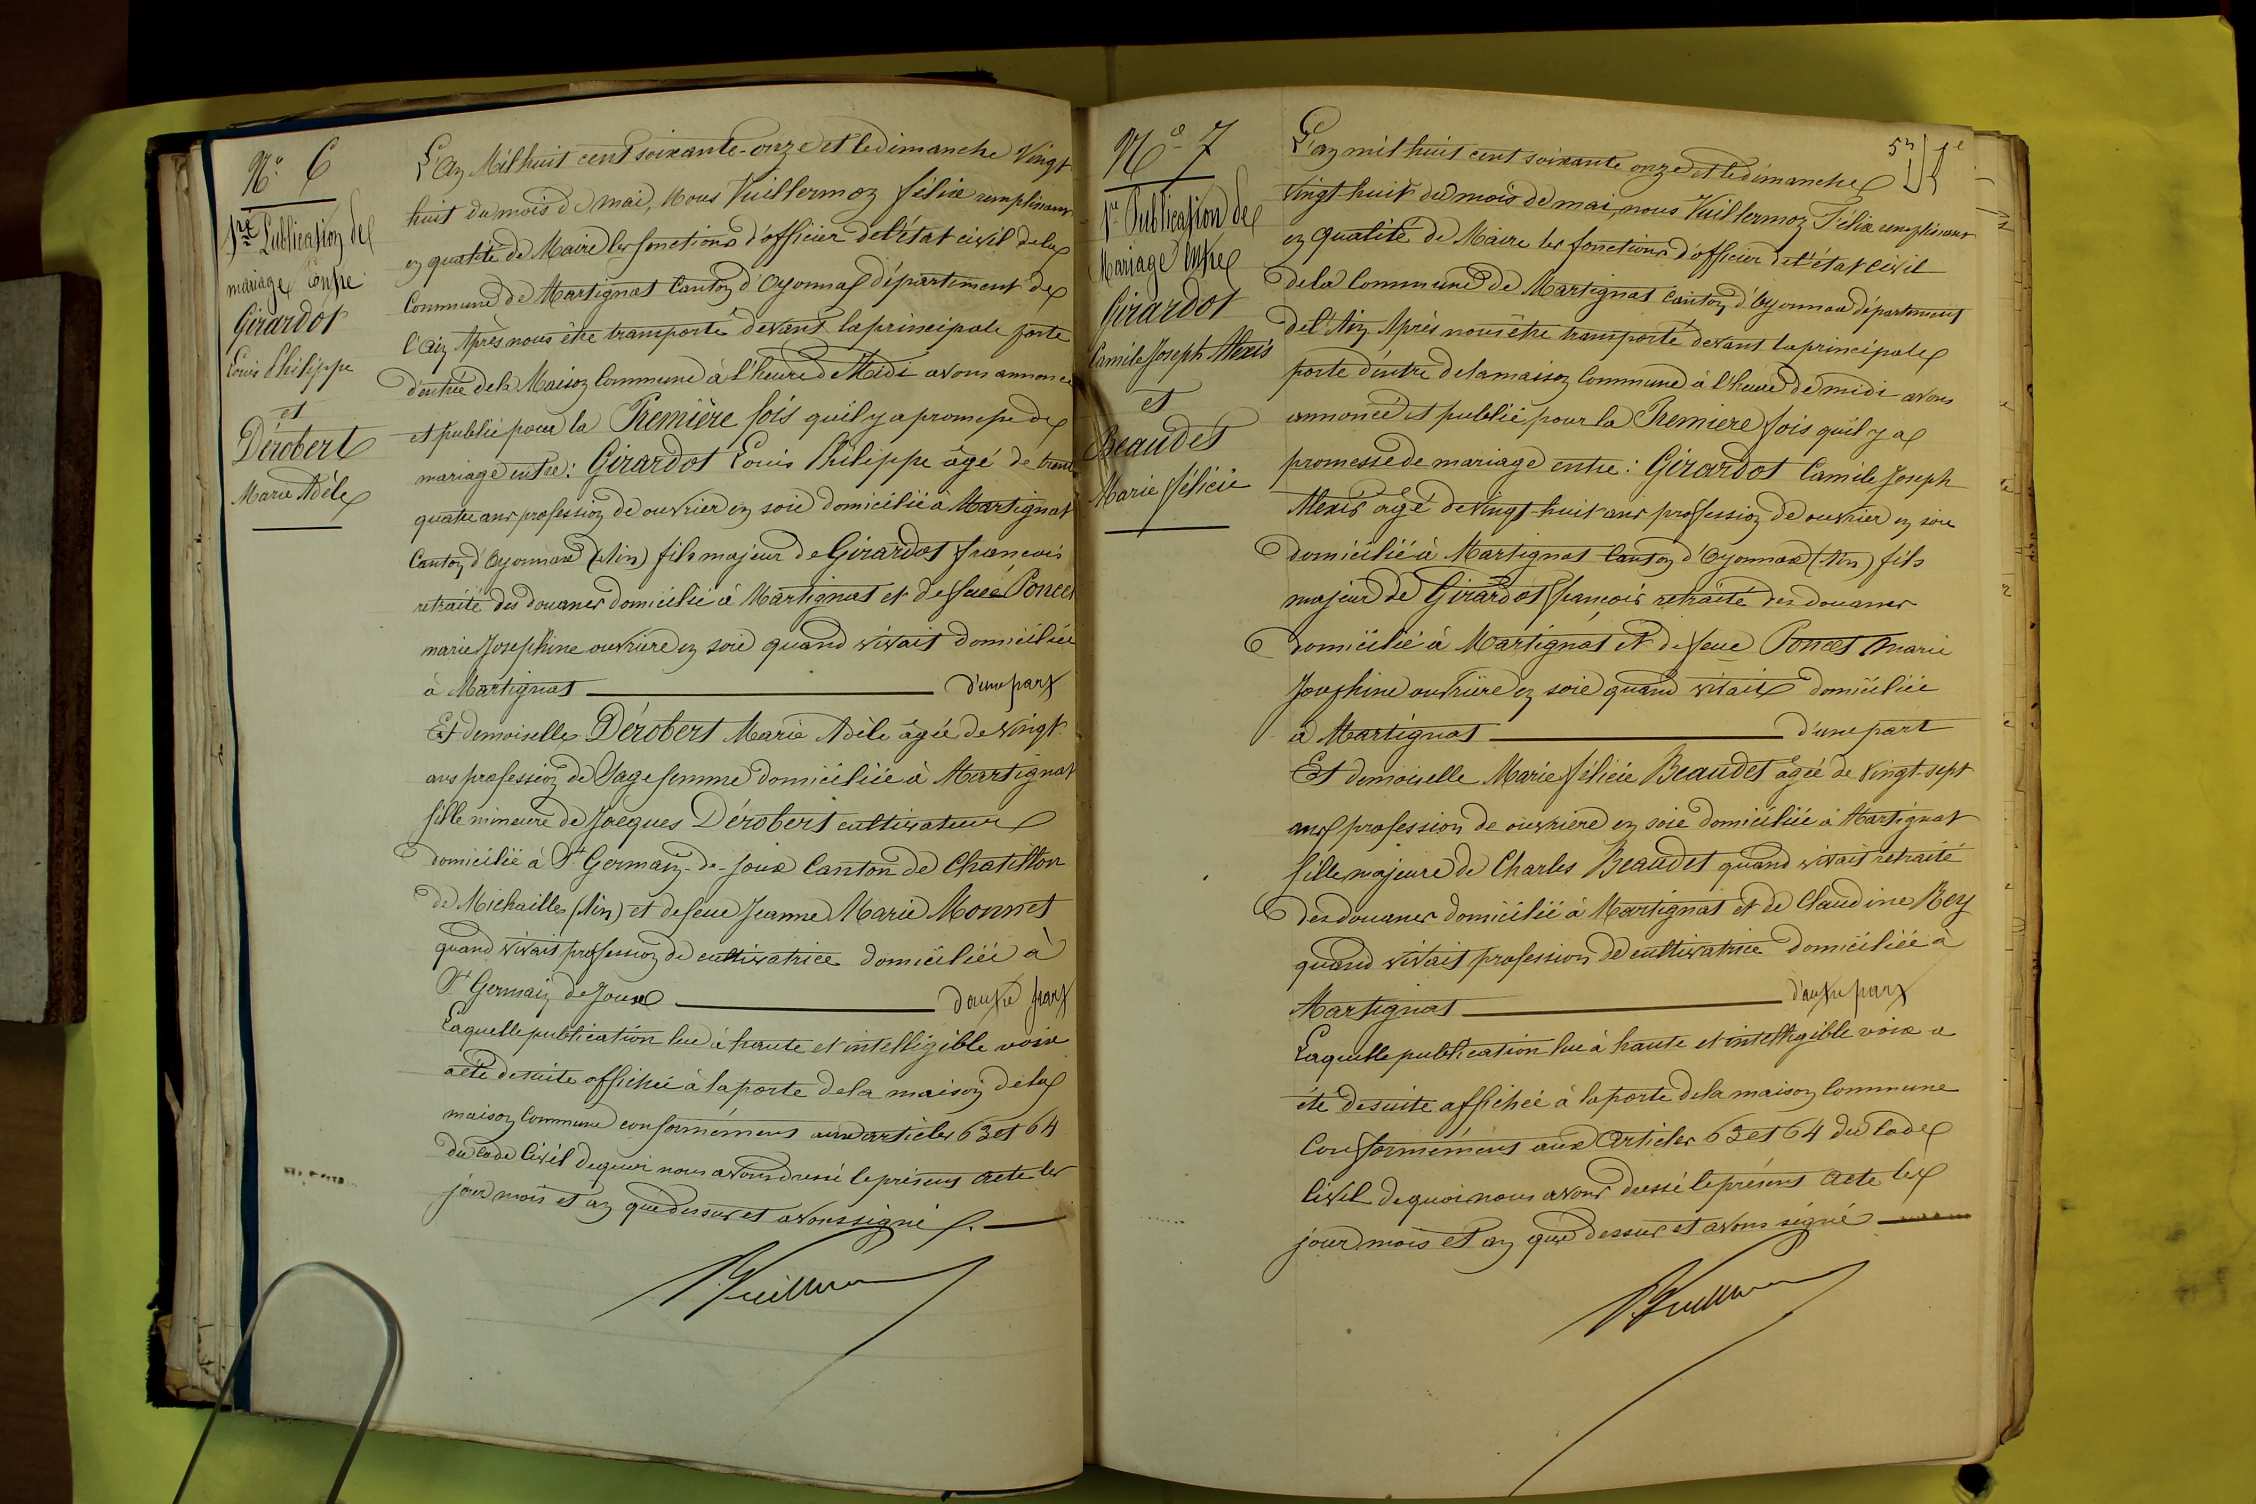 N.° 6
1re Publication de
mariage entre
Girardot
Louis Philippe
et
Dérobert
Marie Adèle
L'an Mil huit cent soixante-onze et le dimanche Vingt
huit du mois de mai, Nous Vuillermoz félix remplissant
en qualité de Maire les fonctions d'officier de l'état civil de la
Commune de Martignat Canton d'Oyonnax département de
l'Ain Après nous être transporté devant la principale porte
d'entrée de la Maison Commune à l'heure de Midi avons annoncé
et publié pour la Première fois qu'il y a promesse de
mariage entre : Girardot Louis Philippe âgé de trente
quatre ans profession de ouvrier en soie domicilié à Martignat
Canton d'Oyonnax (Ain) fils majeur de Girardot françois
retraité des douanes domicilié à Martignat et de feue Poncet
marie Josephine ouvrière en soie quand vivait domiciliée
à Martignat d'une part
Et demoiselle Dérobert Marie Adèle âgée de vingt
ans profession de Sage femme domiciliée à Martignat
fille mineure de Jacques Dérobert cultivateur
domicilié à St Germain-de-Joux Canton de Chatillon
de Michaille (Ain) et de feue Jeanne Marie Monnet
quand vivait profession de cultivatrice domiciliée à
St Germain de Joux d'autre part
Laquelle publication lue à haute et intelligible voix
a été de suite affichée à la porte de la maison de la
maison Commune conformément aux articles 63 et 64
du Code Civil de quoi nous avons dressé le présent acte les
jour mois et an que dessus et avons signé
F. Vuillermoz
N° 7
1re Publication de
Mariage entre
Girardot
Camile Joseph Alexis
et
Beaudet
Marie félicie
L'an mil huit cent soixante onze et le dimanche
vingt-huit du mois de mai, nous Vuillermoz Félix remplissant
en qualité de Maire les fonctions d'officier de l'état civil
de la Commune de Martignat Canton d'Oyonnax département
de l'Ain Après nous être transporté devant la principale
porte d'entre de la maison Commune à l'heure de midi avons
annoncé et publié pour la Premiere fois qu'il y a
promesse de mariage entre : Girardot Camile Joseph
Alexis âgé de vingt-huit ans profession de ouvrier en soie
domicilié à Martignat Canton d'Oyonnax (Ain) fils
majeur de Girardot françois retraité des douanes
domicilié à Martignat et de feue Poncet Marie
Josephine ouvrière en soie quand vivait domiciliée
à Martignat d'une part
Et demoiselle Marie félicie Beaudet âgée de vingt-sept
ans profession de ouvrière en soie domiciliée à Martignat
fille majeure de Charles Beaudet quand vivait retraité
des douanes domicilié à Martignat et de Claudine Rey
quand vivait profession de cultivatrice domiciliée à
Martignat d'autre part
Laquelle publication lue à haute et intelligible voix a
été de suite affichée à la porte de la maison Commune
Conformément aux Articles 63 et 64 du Code
Civil de quoi nous avons dressé le présent acte les
jour mois et an que dessus et avons signé
F. Vuillermoz